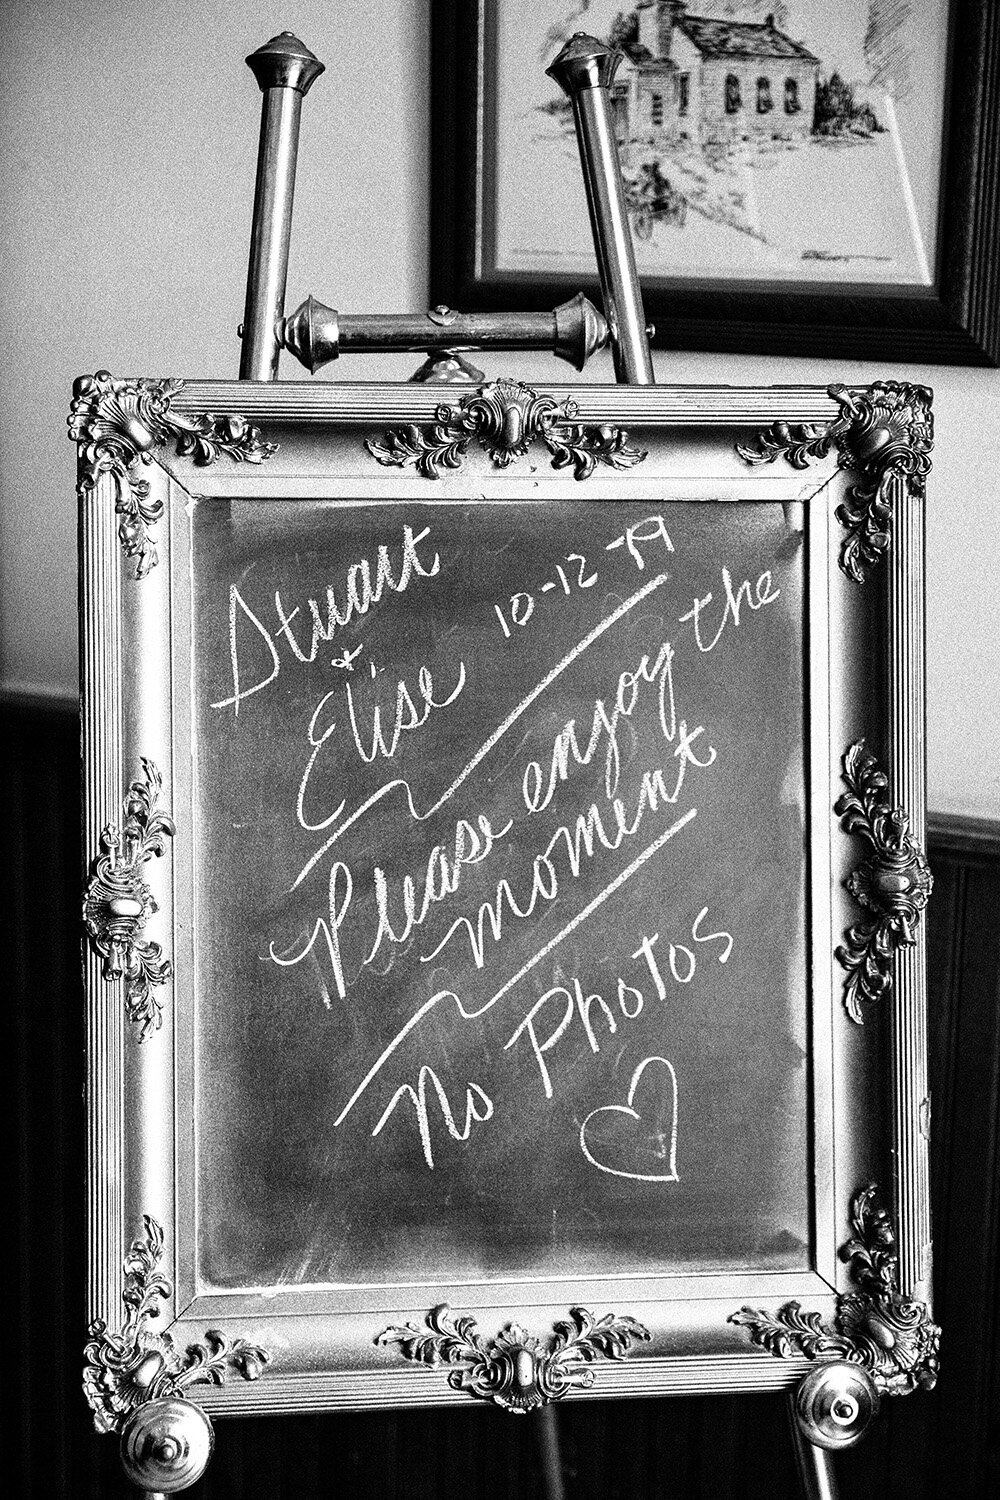 Stuart
&
Elise 10-12-19
Please enjoy the
moment
No Photos